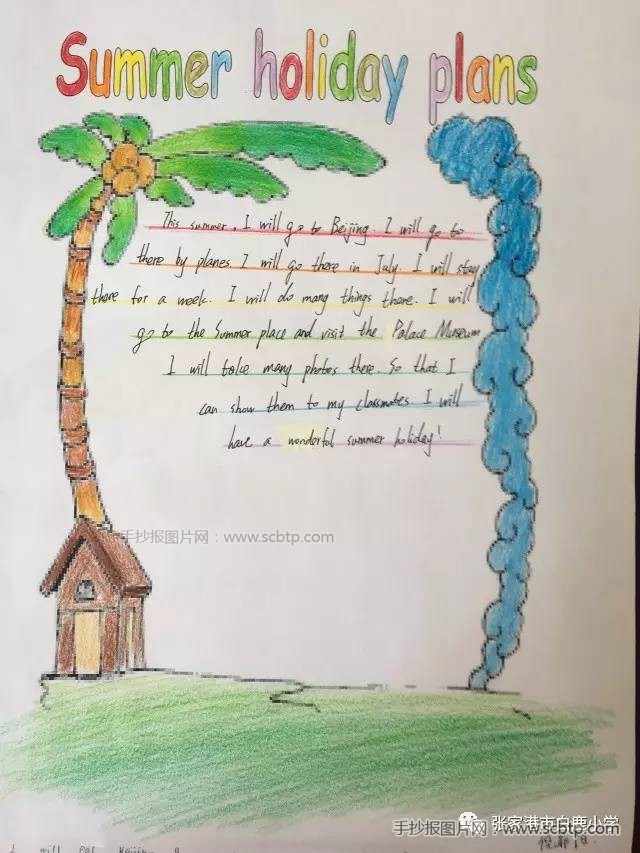 Summer holiday plans
This summer, I will go to Beijing. I will go to
there by planes. I will go there in July. I will stay
there for a week. I will do many things there. I will
go to the Summer place and visit the Palace Museum
I will take many photos there. So that I
can show them to my classmates. I will
have a wonderful summer holiday!
手抄报图片网：www.scbtp.com
张家港市白鹿小学
手抄报图片网：www.scbtp.com
I will eat Beijing